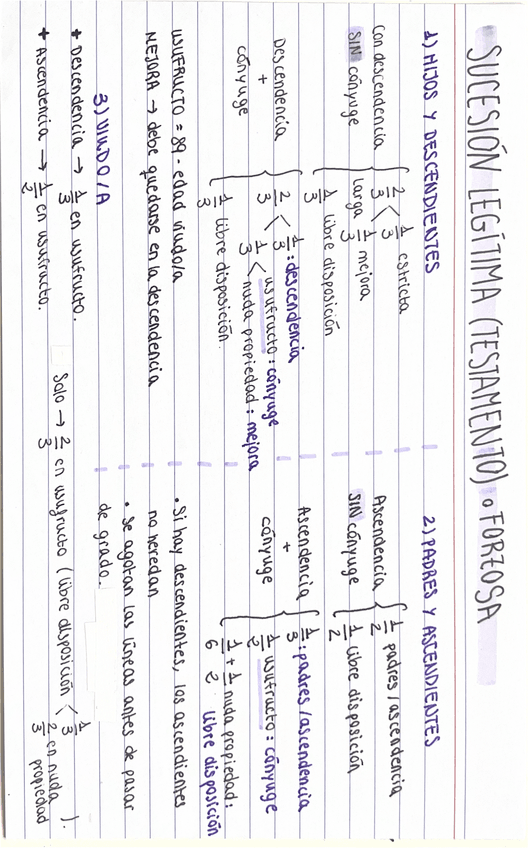 SUCESIÓN LEGÍTIMA (TESTAMENTO) o FORZOSA
1) HIJOS Y DESCENDIENTES
Con descendencia
SIN cónyuge
2/3 < 1/3 estricta
larga 1/3 mejora
1/3 libre disposición
Descendencia
+
cónyuge
2/3 < 1/3 : descendencia
1/3 < usufructo : cónyuge
nuda propiedad : mejora
1/3 libre disposición.
USUFRUCTO = 89 - edad viudo/a
MEJORA → debe quedarse en la descendencia
2) PADRES Y ASCENDIENTES
Ascendencia
SIN cónyuge
1/2 padres / ascendencia
1/2 libre disposición
Ascendencia
+
cónyuge
1/3 : padres / ascendencia
1/2 usufructo : cónyuge
1/6 + 1/2 nuda propiedad :
libre disposición
• Si hay descendientes, los ascendientes
no heredan
• Se agotan las líneas antes de pasar
de grado.
3) VIUDO/A
+ Descendencia → 1/3 en usufructo.
+ Ascendencia → 1/2 en usufructo.
Solo → 2/3 en usufructo (libre disposición < 1/3
2/3 en nuda
propiedad ).